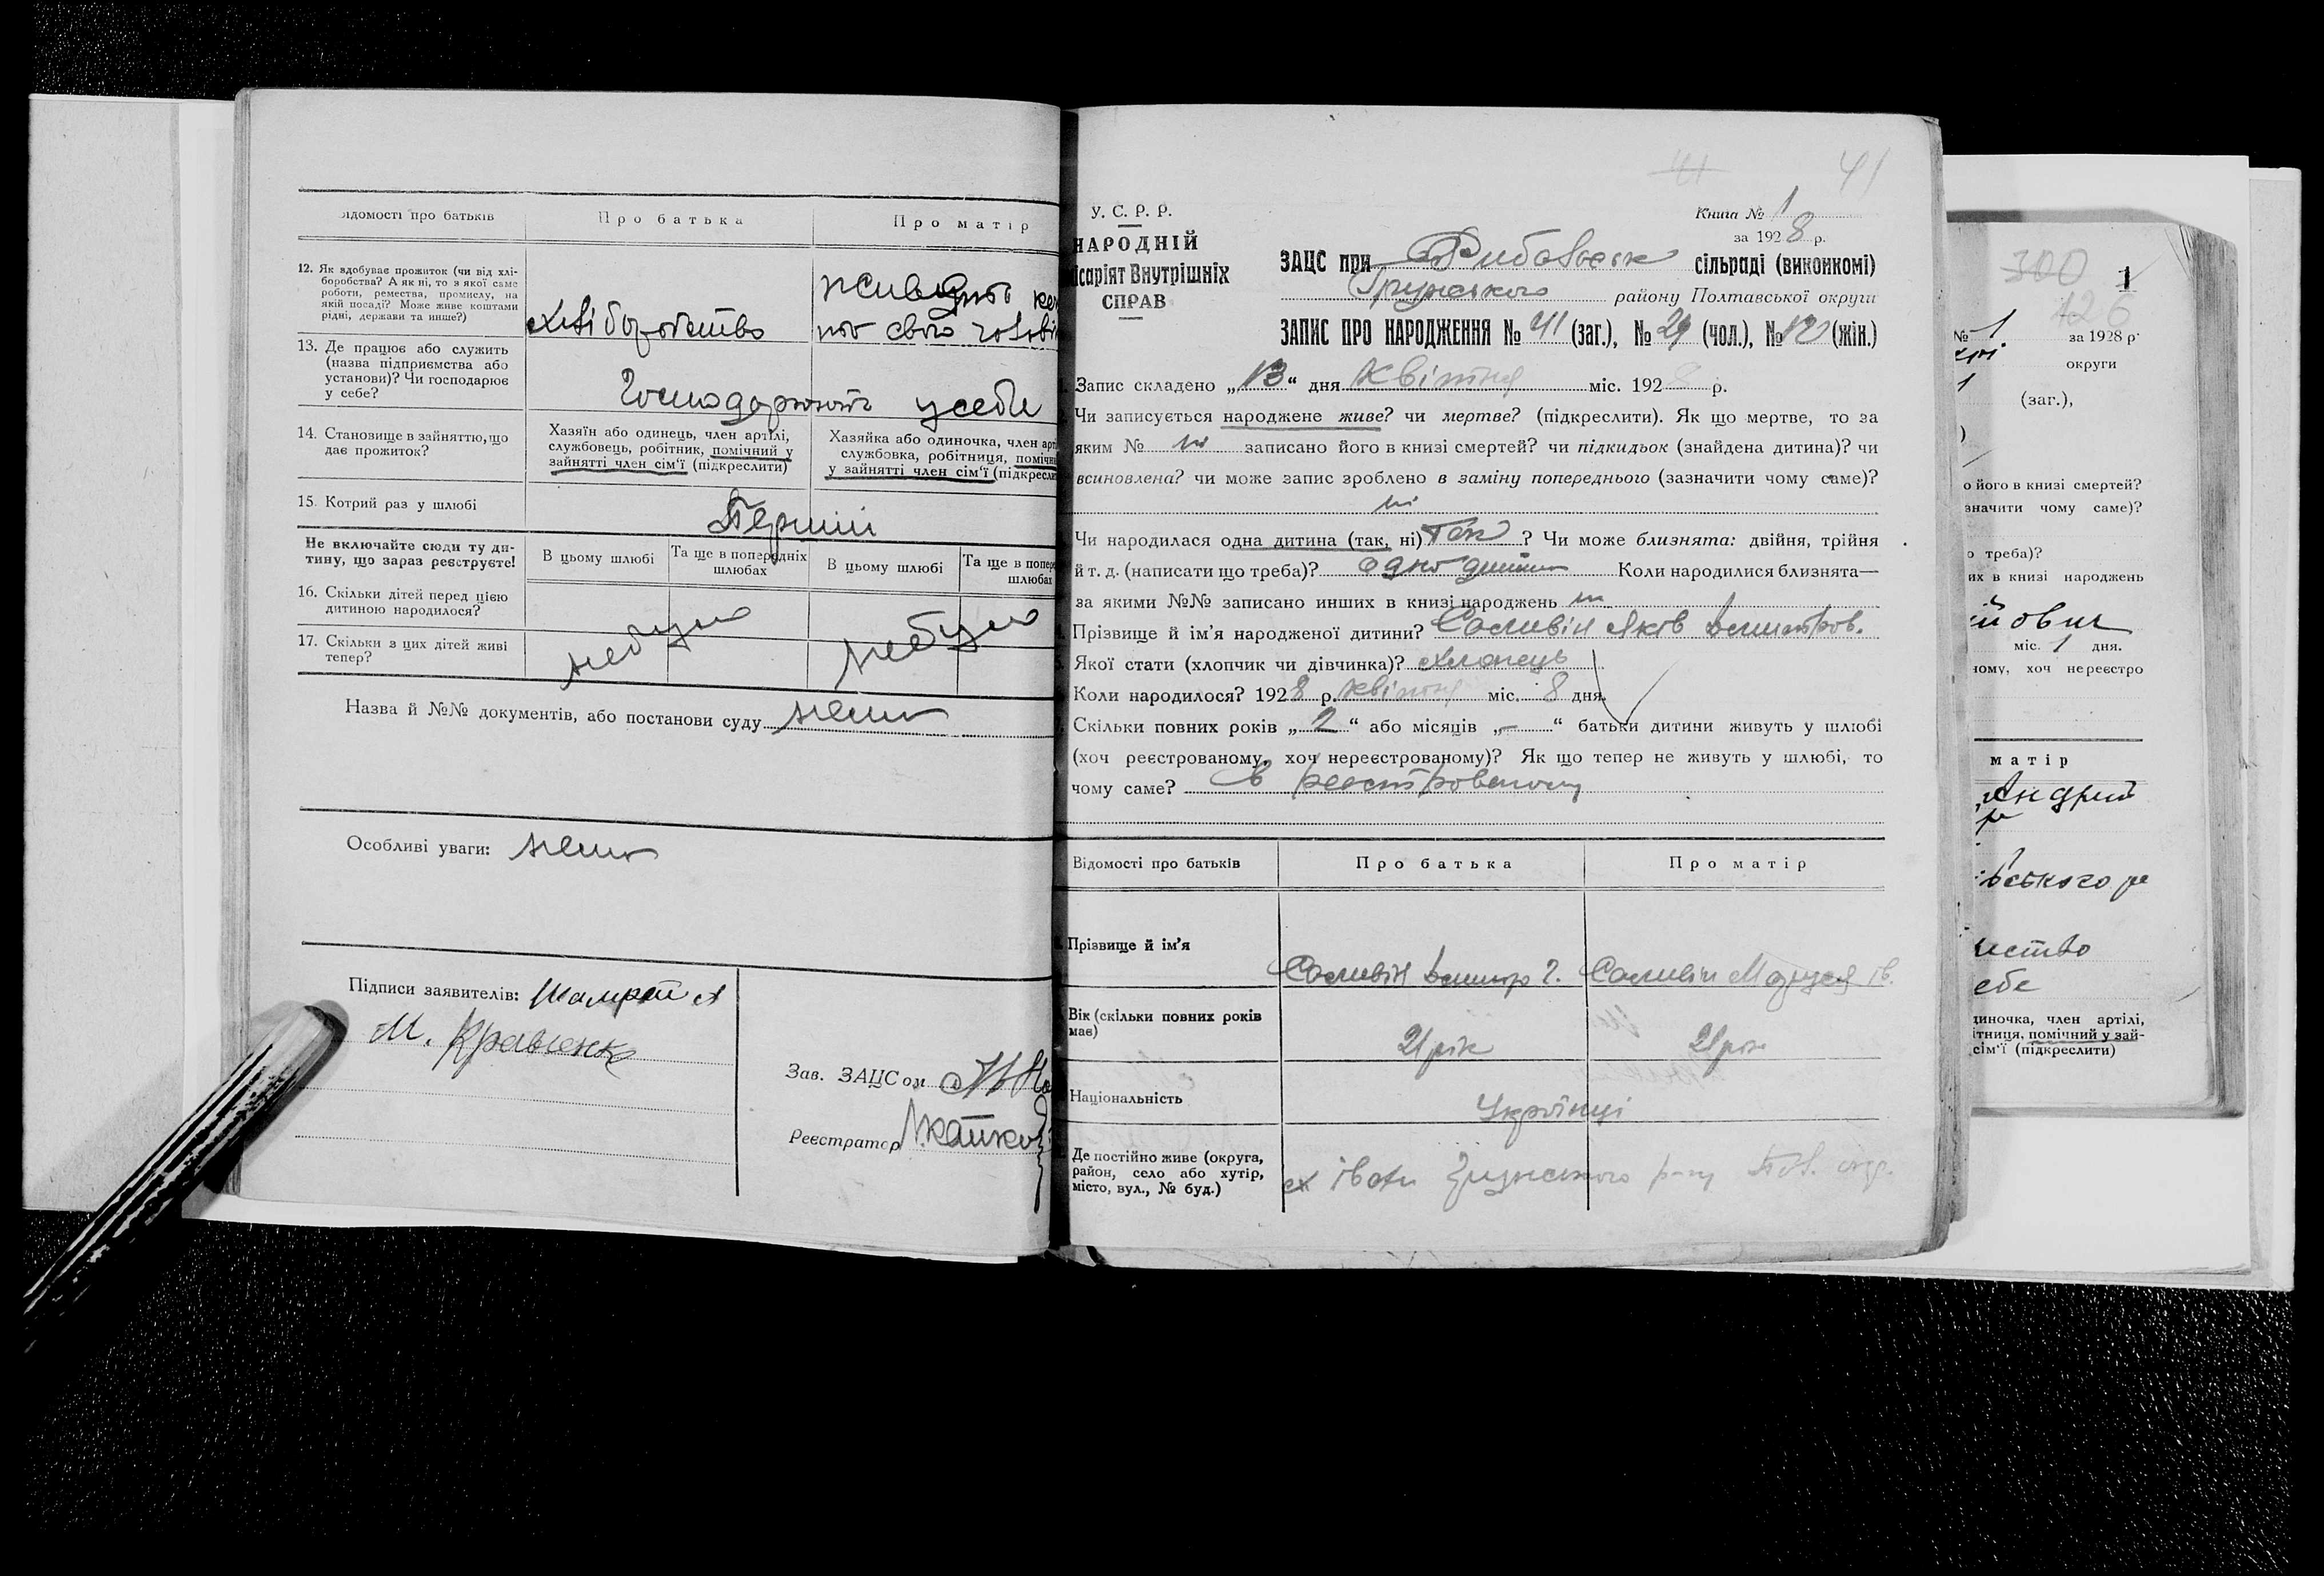 Відомості про батьків
Про батька
Про матір
12. Як здобуває прожиток (чи від хлі-
боробства? А як ні, то з якої саме
роботи, ремества, промислу, на
якій посаді? Може живе коштами
рідні, держави та инше?)
хліборобство
живуть
свого
13. Де працює або служить
(назва підприємства або
установи)? Чи господарює
у себе?
Господарюють у себе
14. Становище в зайняттю, що
дає прожиток?
Хазяїн або одинець, член артілі,
службовець, робітник, помічний у
зайнятті член сім'ї (підкреслити)
Хазяйка або одиночка, член арт
службовка, робітниця, помічн
у зайнятті член сім'ї (підкресли
15. Котрий раз у шлюбі
Перший
Не включайте сюди ту ди-
тину, що зараз реєструєте!
В цьому шлюбі
Та ще в попередніх
шлюбах
В цьому шлюбі
Та ще в попере
шлюбах
16. Скільки дітей перед цією
дитиною народилося?
17. Скільки з цих дітей живі
тепер?
небуло
небуло
Назва й №№ документів, або постанови суду нема
Особливі уваги: нема
Підписи заявителів: Шамрай
М. Кравченко
Зав. ЗАЦСом
Реєстратор
41
41
У. С. Р. Р.
НАРОДНІЙ
ісаріят Внутрішніх
СПРАВ
Книга № 1
за 1928 р.
ЗАЦС при сільраді (виконкомі)
Грунського району Полтавської округи
ЗАПИС ПРО НАРОДЖЕННЯ № 41 (заг.), № 29 (чол.), № 12 (жін.)
Запис складено „13“ дня квітня міс. 1928 р.
Чи записується народжене живе? чи мертве? (підкреслити). Як що мертве, то за
яким № ні записано його в книзі смертей? чи підкидьок (знайдена дитина)? чи
всиновлена? чи може запис зроблено в заміну попереднього (зазначити чому саме)?
ні
Чи народилася одна дитина (так, ні) так ? Чи може близнята: двійня, трійня
й т. д. (написати що треба)? одно дитин Коли народилися близнята—
за якими №№ записано инших в книзі народжень ні
Прізвище й ім'я народженої дитини? Яків
Якої стати (хлопчик чи дівчинка)? хлопець
Коли народилося? 1928 р. квітня міс. 8 дня.
Скільки повних років „2“ або місяців „—“ батьки дитини живуть у шлюбі
(хоч реєстрованому, хоч нереєстрованому)? Як що тепер не живуть у шлюбі, то
чому саме? в реєстрованому
Відомості про батьків
Про батька
Про матір
Прізвище й ім'я
Вік (скільки повних років
має)
21 рік
21 рік
Національність
Українці
Де постійно живе (округа,
район, село або хутір,
місто, вул., № буд.)
Грунського
300
126
1
№ 1
за 1928 р.
округи
(заг.),
о його в книзі смертей?
значити чому саме)?
о треба)?
их в книзі народжень
йович
міс. 1 дня.
ному, хоч нереєстро
матір
вського
ебе
диночка, член артілі,
ітниця, помічний у зай-
сім'ї (підкреслити)